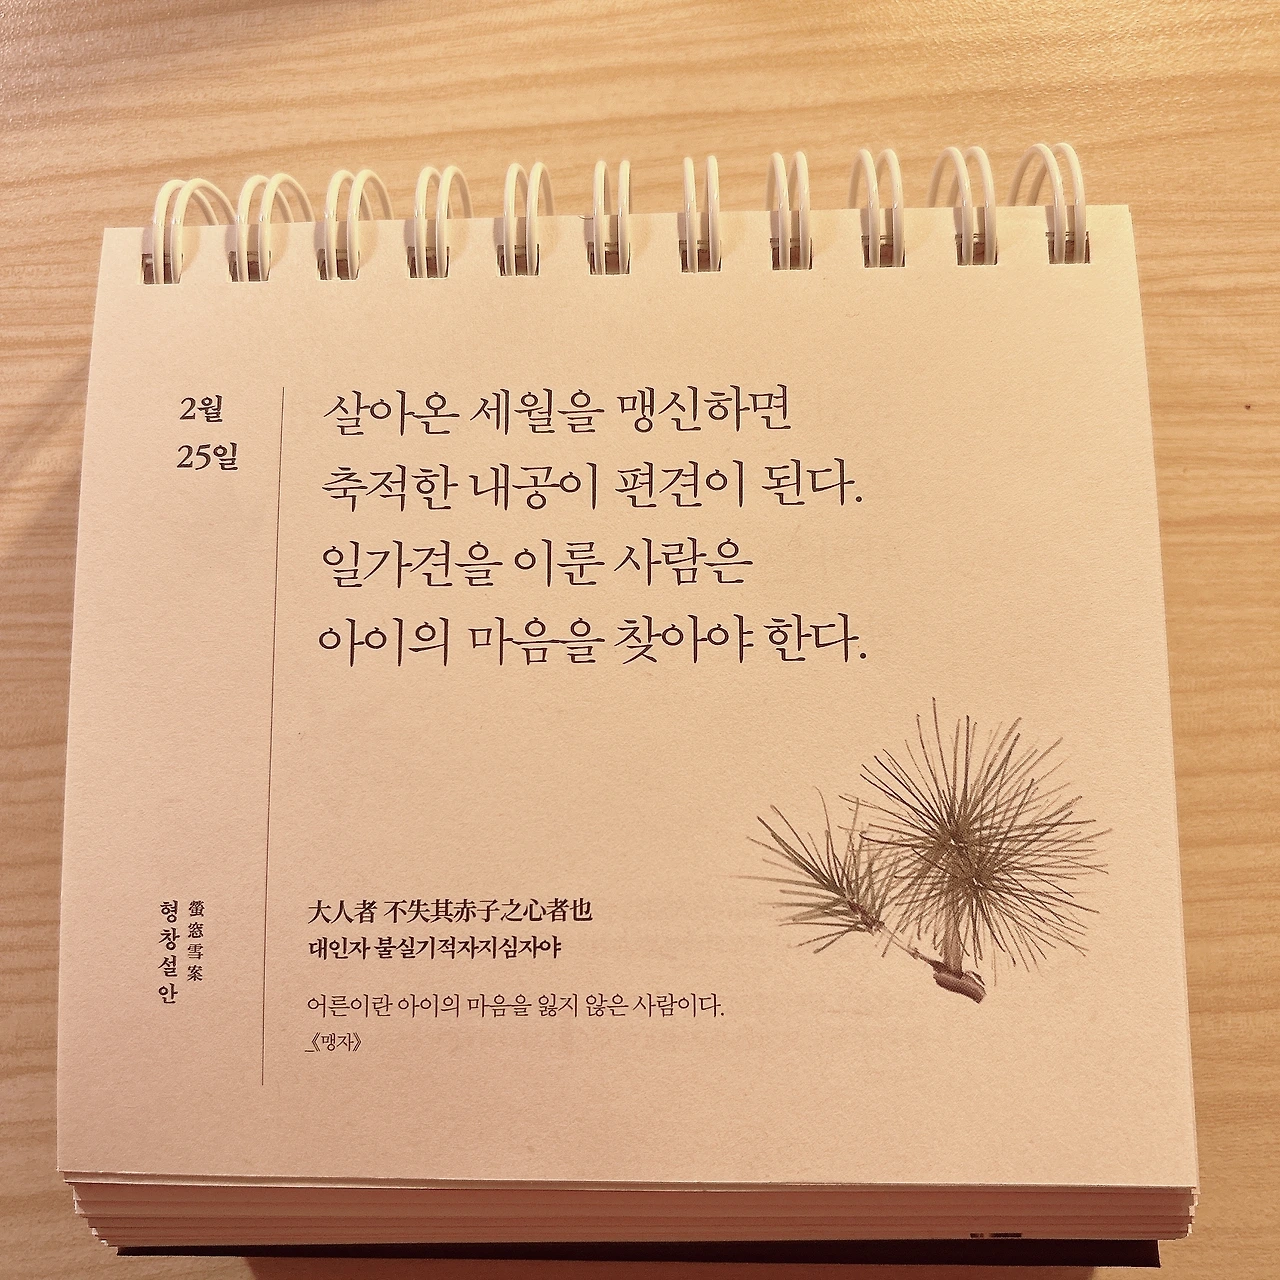 2월
25일
살아온 세월을 맹신하면
축적한 내공이 편견이 된다.
일가견을 이룬 사람은
아이의 마음을 찾아야 한다.
螢窓雪案
형창설안
大人者 不失其赤子之心者也
대인자 불실기적자지심자야
어른이란 아이의 마음을 잃지 않은 사람이다.
_《맹자》